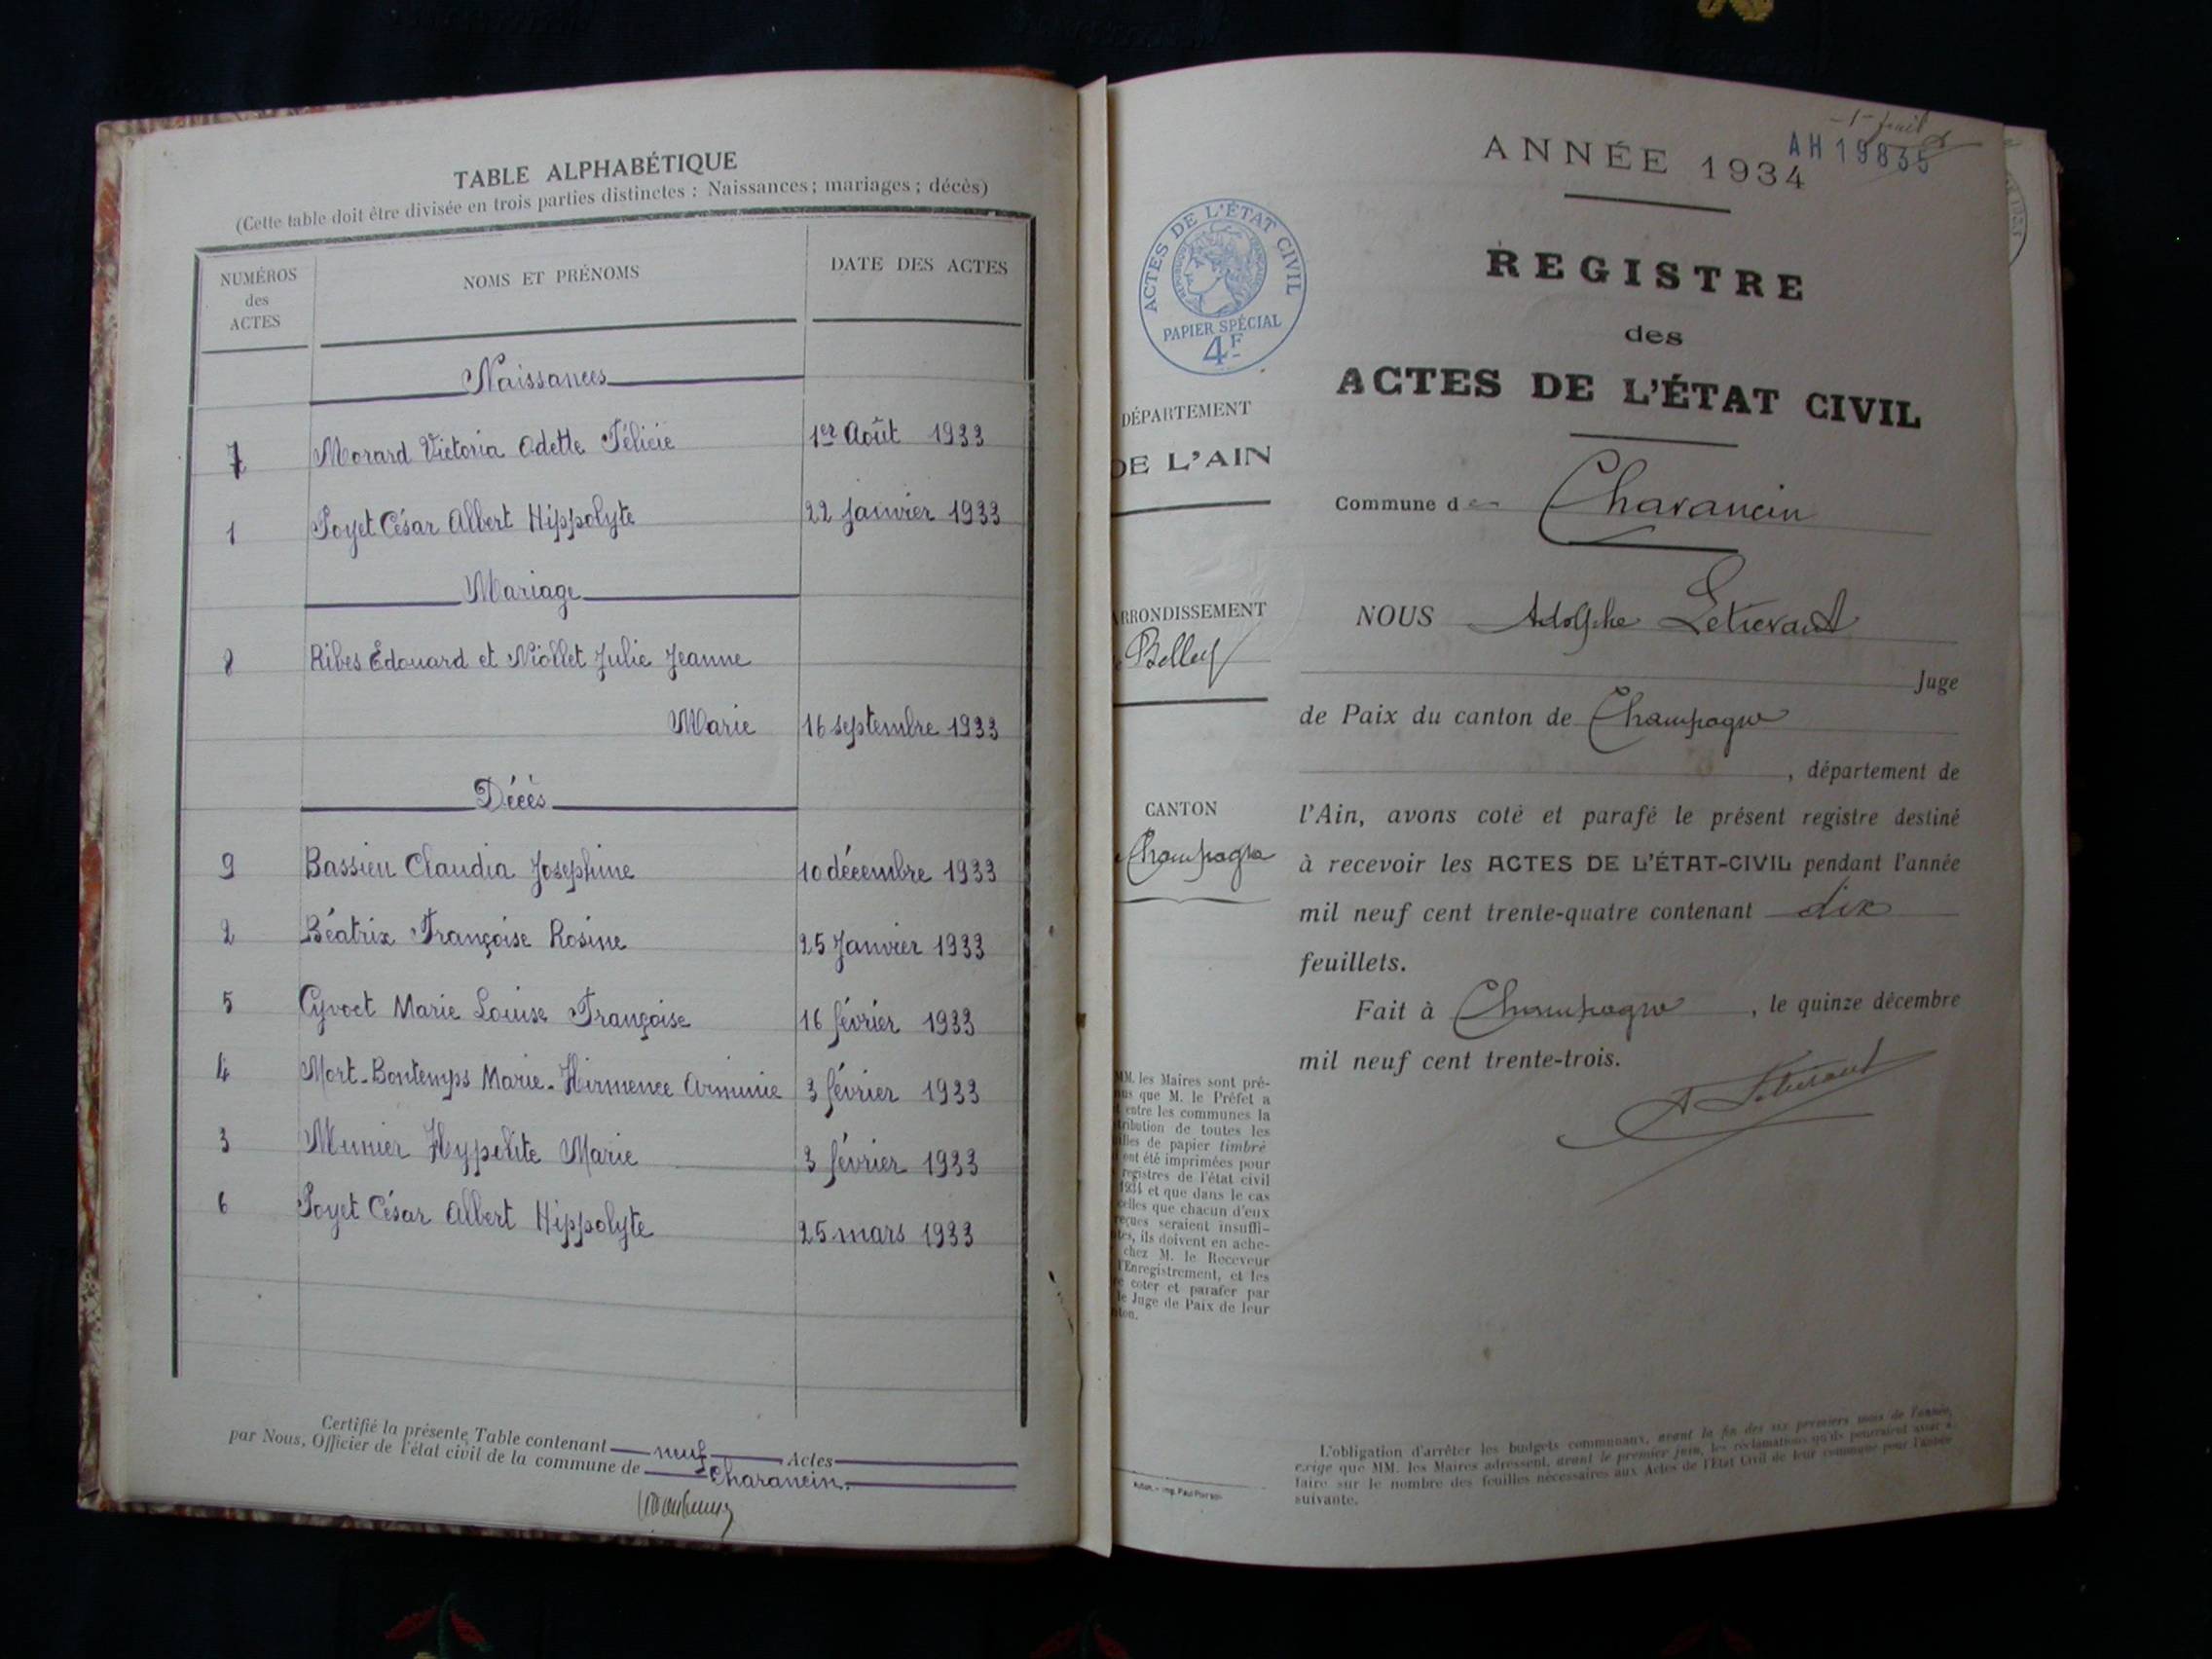 TABLE ALPHABÉTIQUE
(Cette table doit être divisée en trois parties distinctes : Naissances ; mariages ; décès)
NUMÉROS des ACTES NOMS ET PRÉNOMS DATE DES ACTES
Naissances
7 Morard Victoria Odette Félicie 1er Août 1933
1 Poyet César Albert Hippolyte 22 Janvier 1933
Mariage
8 Ribes Édouard et Niollet Julie Jeanne
Marie 16 septembre 1933
Décès
9 Bassieu Claudia Joséphine 10 décembre 1933
2 Béatrix Françoise Rosine 25 Janvier 1933
5 Cyvoct Marie Louise Françoise 16 février 1933
4 Mort-Bontemps Marie-Hirmence Arminie 3 février 1933
3 Munier Hypolite Marie 3 février 1933
6 Poyet César Albert Hippolyte 25 mars 1933
Certifié la présente Table contenant neuf Actes
par Nous, Officier de l'état civil de la commune de Charancin.
ANNÉE 1934
AH 19835
ACTES DE L'ÉTAT CIVIL
PAPIER SPÉCIAL
4F
REGISTRE
des
ACTES DE L'ÉTAT CIVIL
DÉPARTEMENT
DE L'AIN
Commune de Charancin
ARRONDISSEMENT
Belley
NOUS Adolphe Letievant
Juge
de Paix du canton de Champagne
, département de
CANTON
Champagne
l'Ain, avons coté et parafé le présent registre destiné
à recevoir les ACTES DE L'ÉTAT-CIVIL pendant l'année
mil neuf cent trente-quatre contenant dix
feuillets.
Fait à Champagne, le quinze décembre
mil neuf cent trente-trois.
MM. les Maires sont pré-
que M. le Préfet a
entre les communes la
de toutes les
de papier timbré
ont été imprimées pour
registres de l'état civil
1934 et que dans le cas
celles que chacun d'eux
reçues seraient insuffi-
ils doivent en ache-
chez M. le Receveur
l'Enregistrement, et les
coter et parafer par
le Juge de Paix de leur
L'obligation d'arrêter les budgets communaux, avant la fin des six premiers mois de l'année,
exige que MM. les Maires adressent, avant le premier juin, les réclamations qu'ils pourraient avoir à
faire sur le nombre des feuilles nécessaires aux Actes de l'État Civil de leur commune pour l'année
suivante.